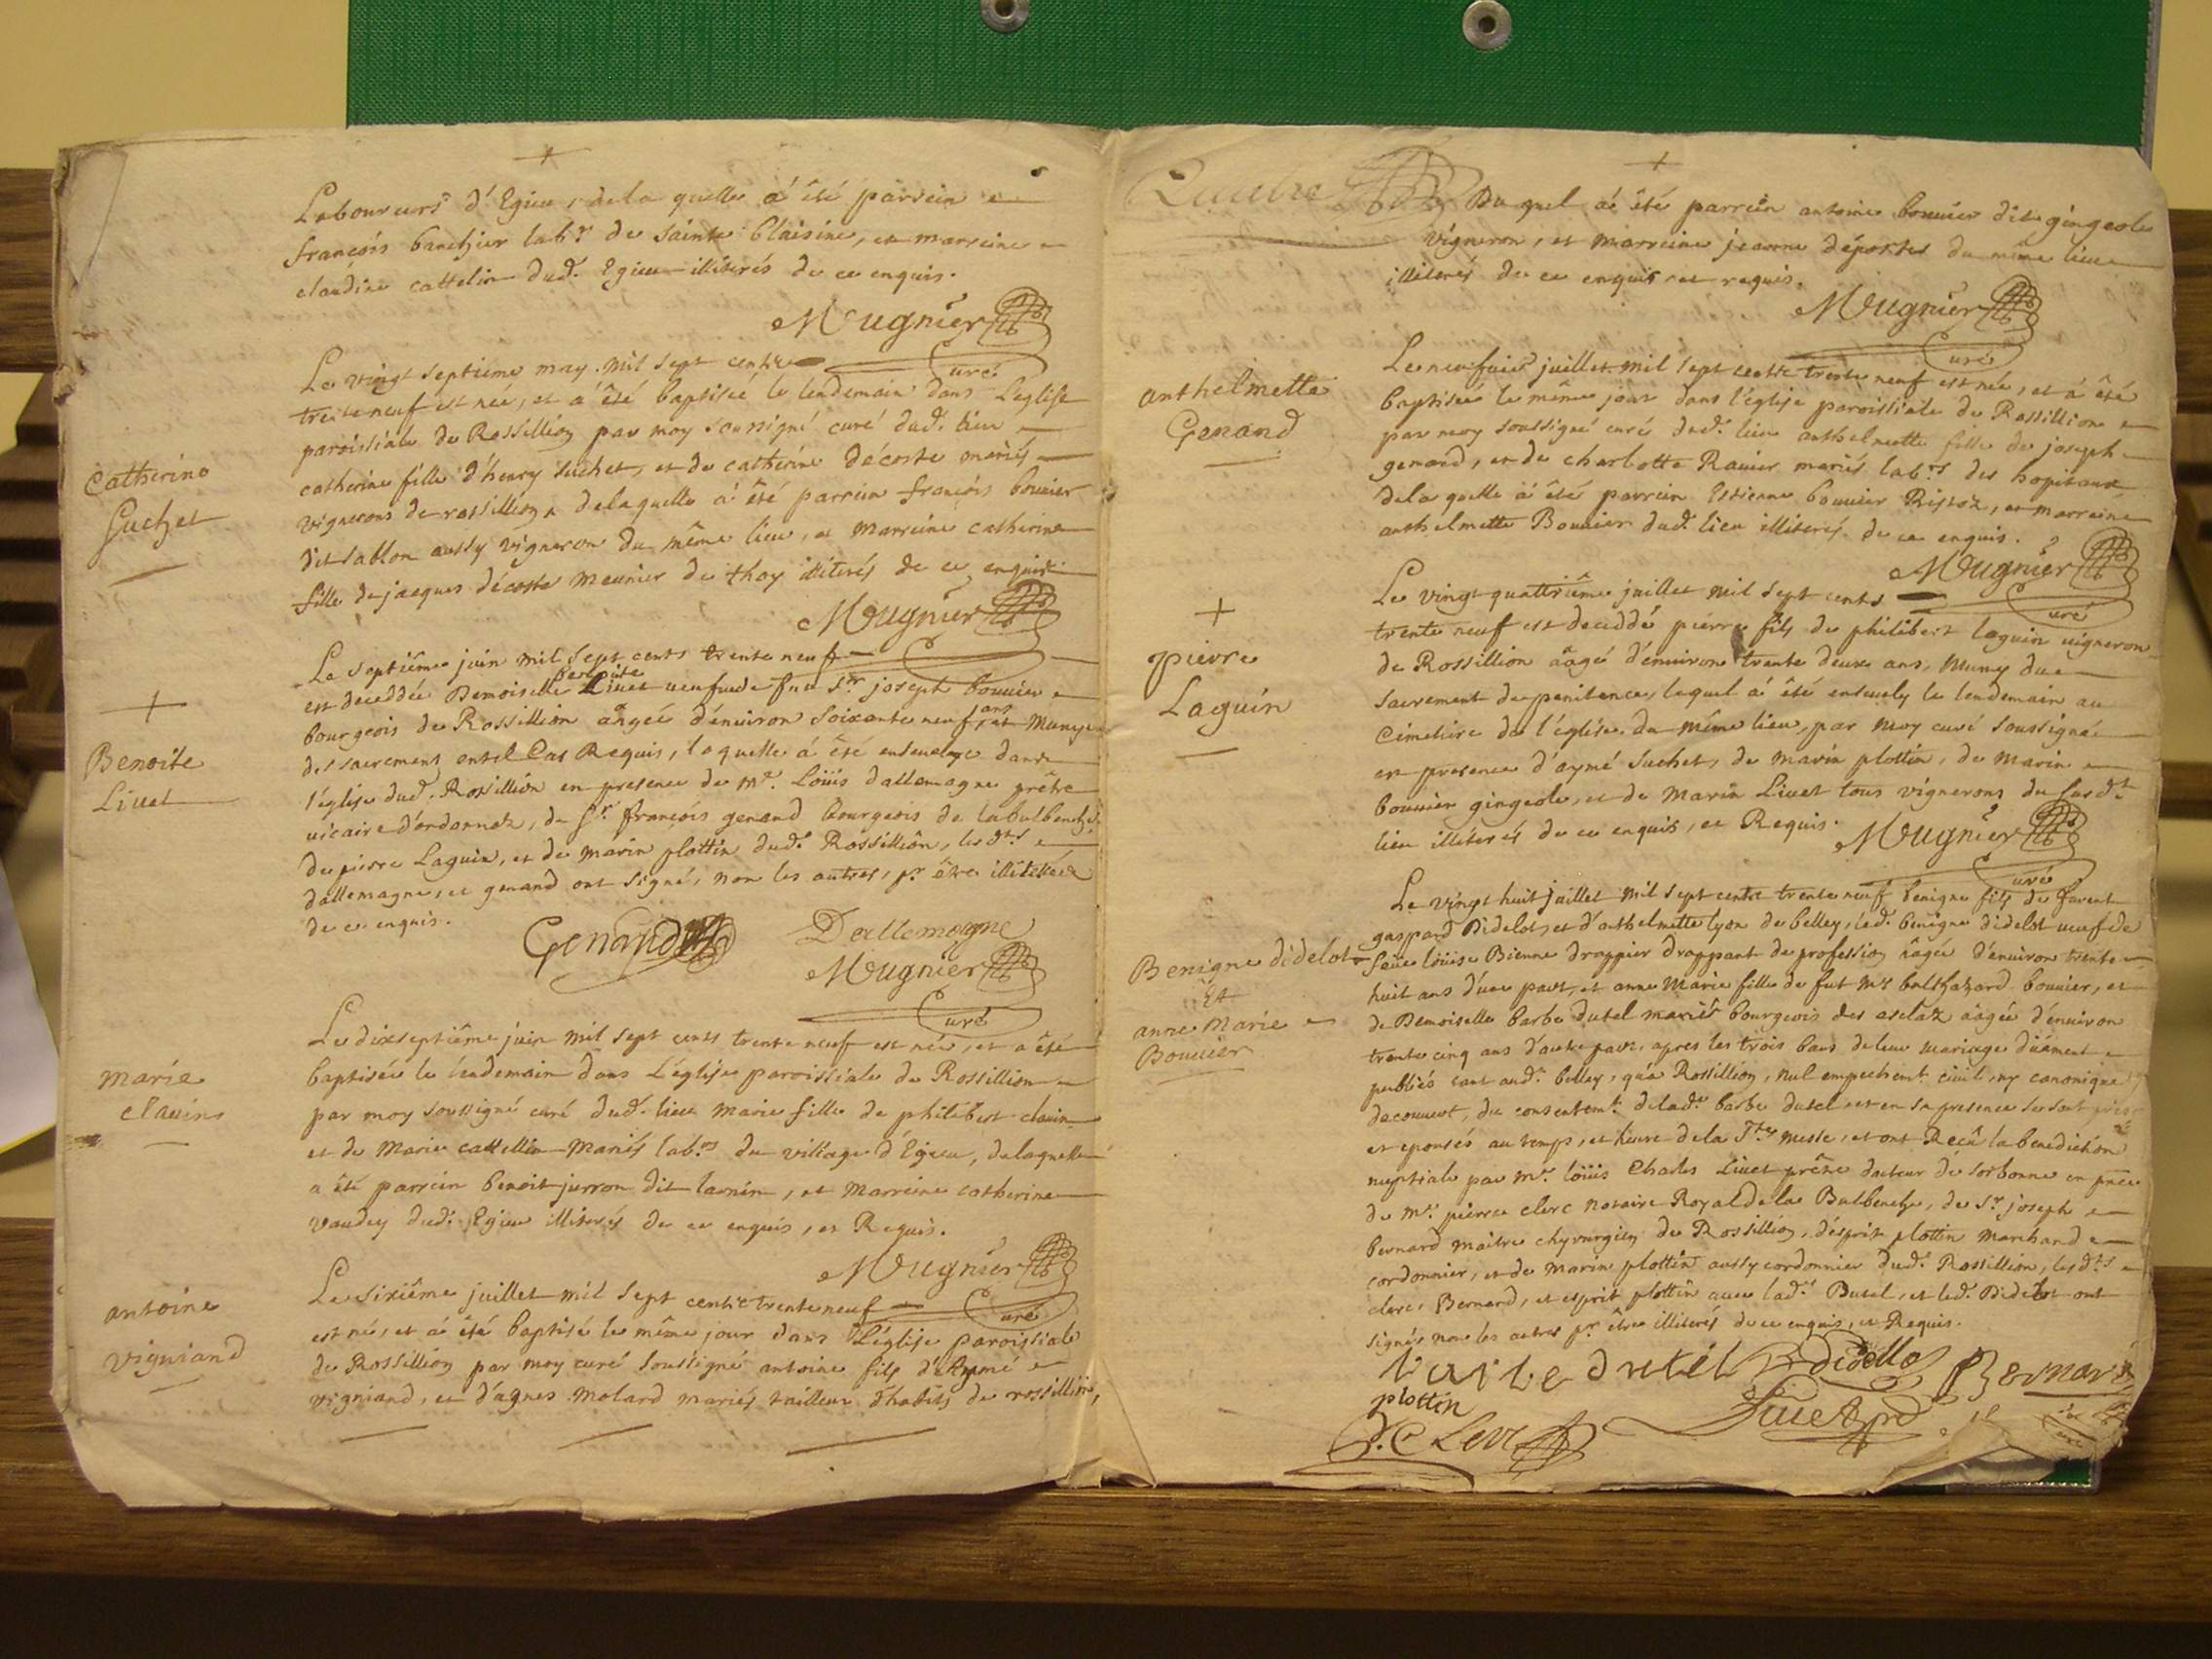 Laboureurs d'Egieu, de la quelle a été parrein
françois banchier lab.r de sainte blaisine, et marreine
claudine cattelin dud. Egieu illiterés de ce enquis.
Mugnier
curé
Catherine
Suchet
Le vingt septiéme may mil sept cents
trente neuf est née, et a été baptisée le lendemain dans l'eglise
paroissiale de Rossillion par moy soussigné curé dud. lieu
catherine fille d'henry suchet, et de catherine décoste mariés
vignerons de rossillion, de laquelle a été parrein françois bouvier
dit sablon aussy vigneron du même lieu, et marreine catherine
fille de jacques décoste meunier de thoy illiterés de ce enquis
Mugnier
curé
Benoite
Livet
Le septiême juin mil sept cents trente neuf
est deceddée Demoiselle benoite Livet veufve de feu Sr. joseph bouvier
bourgeois de Rossillion aagée d'environ soixante neuf ans et munye
des sacrements en tel Cas Requis, laquelle á été ensevelye dans
l'église dud. Rossillion en presence de Mr. Loüis dallemagne prêtre
vicaire d'ordonnaz, de Sr. françois genand bourgeois de la bulbenche
de pierre Laguin, et de marin plottin dud. Rossillion, les d.ts
dallemagne, et genand ont signé, non les autres, pr. être illiterés
de ce enquis.
Genand Dallemagne
Mugnier
curé
marie
clavins
Le dixseptiême juin mil sept cents trente neuf est née, et a été
baptisée le lendemain dans L'église paroissiale de Rossillion
par moy soussigné curé dud. lieu marie fille de philibert clavin
et de Marie cattellin Mariés lab.rs du village d'Egieu, de laquelle
a été parrein benoit jurron dit lavnin, et Marreine catherine
vaudey dud. Egieu illiterés de ce enquis, et Requis.
Mugnier
curé
antoine
vigniand
Le sixiême juillet mil sept cents trente neuf
est né, et á été baptisé le même jour dans l'église paroissiale
de Rossillion par moy curé soussigné antoine fils d'Aymé
vigniand, et d'agnes molard mariés tailleur d'habits de rossillion,
Quatre
Du quel á été parrein antoine bouvier dit gingeole
vigneron, et marreine jeanne déportes du même lieu
illiterés de ce enquis et requis.
Mugnier
curé
anthelmette
Genand
Le neufvié juillet mil sept cents trente neuf est née, et á été
baptisée le même jour dans l'église paroissiale de Rossillion
par moy soussigné curé dud. lieu anthelmette fille de joseph
genand, et de charlotte Ravier mariés lab.rs des hopitaux
de la quelle á été parrein Estienne bouvier Ristoz, et marreine
anthelmette Bouvier dud. lieu illiterés de ce enquis.
Mugnier
curé
pierre
Laguin
Le vingt quattriême juillet mil sept cents
trente neuf est deceddé pierre fils de philibert laguin vigneron
de Rossillion aagé d'environ trente deux ans, Muny du
sacrement de penitence, lequel á été ensevely le lendemain au
Cimetiere de l'église du même lieu, par moy curé soussigné
en presence d'aymé suchet, de marin plottin, de marin
bouvier gingeole, et de Marin Livet tous vignerons du susd.t
lieu illiterés de ce enquis, et Requis.
Mugnier
curé
Benigne didelot
Et
anne Marie
Bouvier
Le vingt huit juillet mil sept cents trente neuf benigne fils de
gaspard Didelot, et d'anthelmette lyon de belley, led. benigne didelot veuf de
feüe loüise Bienne drappier drappant de profession aagé d'environ trente
huit ans d'une part, et anne Marie fille de fut Mr balthazard bouvier, et
de Demoiselle barbe dutel mariés bourgeois des asclaz aagée d'environ
trente cinq ans d'autre part, apres les trois bans de leur mariage düement
publiés tant aud. belley, qu'a Rossillion, nul empechemt. civil, ny canonique
decouvert, du consentemt. de lad. barbe dutel et en sa presence se sont
et epousés au temps, et heure de la Ste messe, et ont Recû la benediction
nuptiale par Mr. loüis Charles Livet prêtre docteur de sorbonne en pnce
de Mr. pierre clerc notaire Royal de la Bulbenche, de Sr. joseph
bernard maitre chyrurgien de Rossillion, d'esprit plottin marchand
cordonnier, et de marin plottin aussy cordonnier dud. Rossillion, les d.ts
clerc, Bernard, et esprit plottin avec lad. Dutel, et led. Didelot ont
signés non les autres pr. être illiterés de ce enquis, et Requis.
barbe dutel B didellot Bernard
plottin
P. Clerc Livet